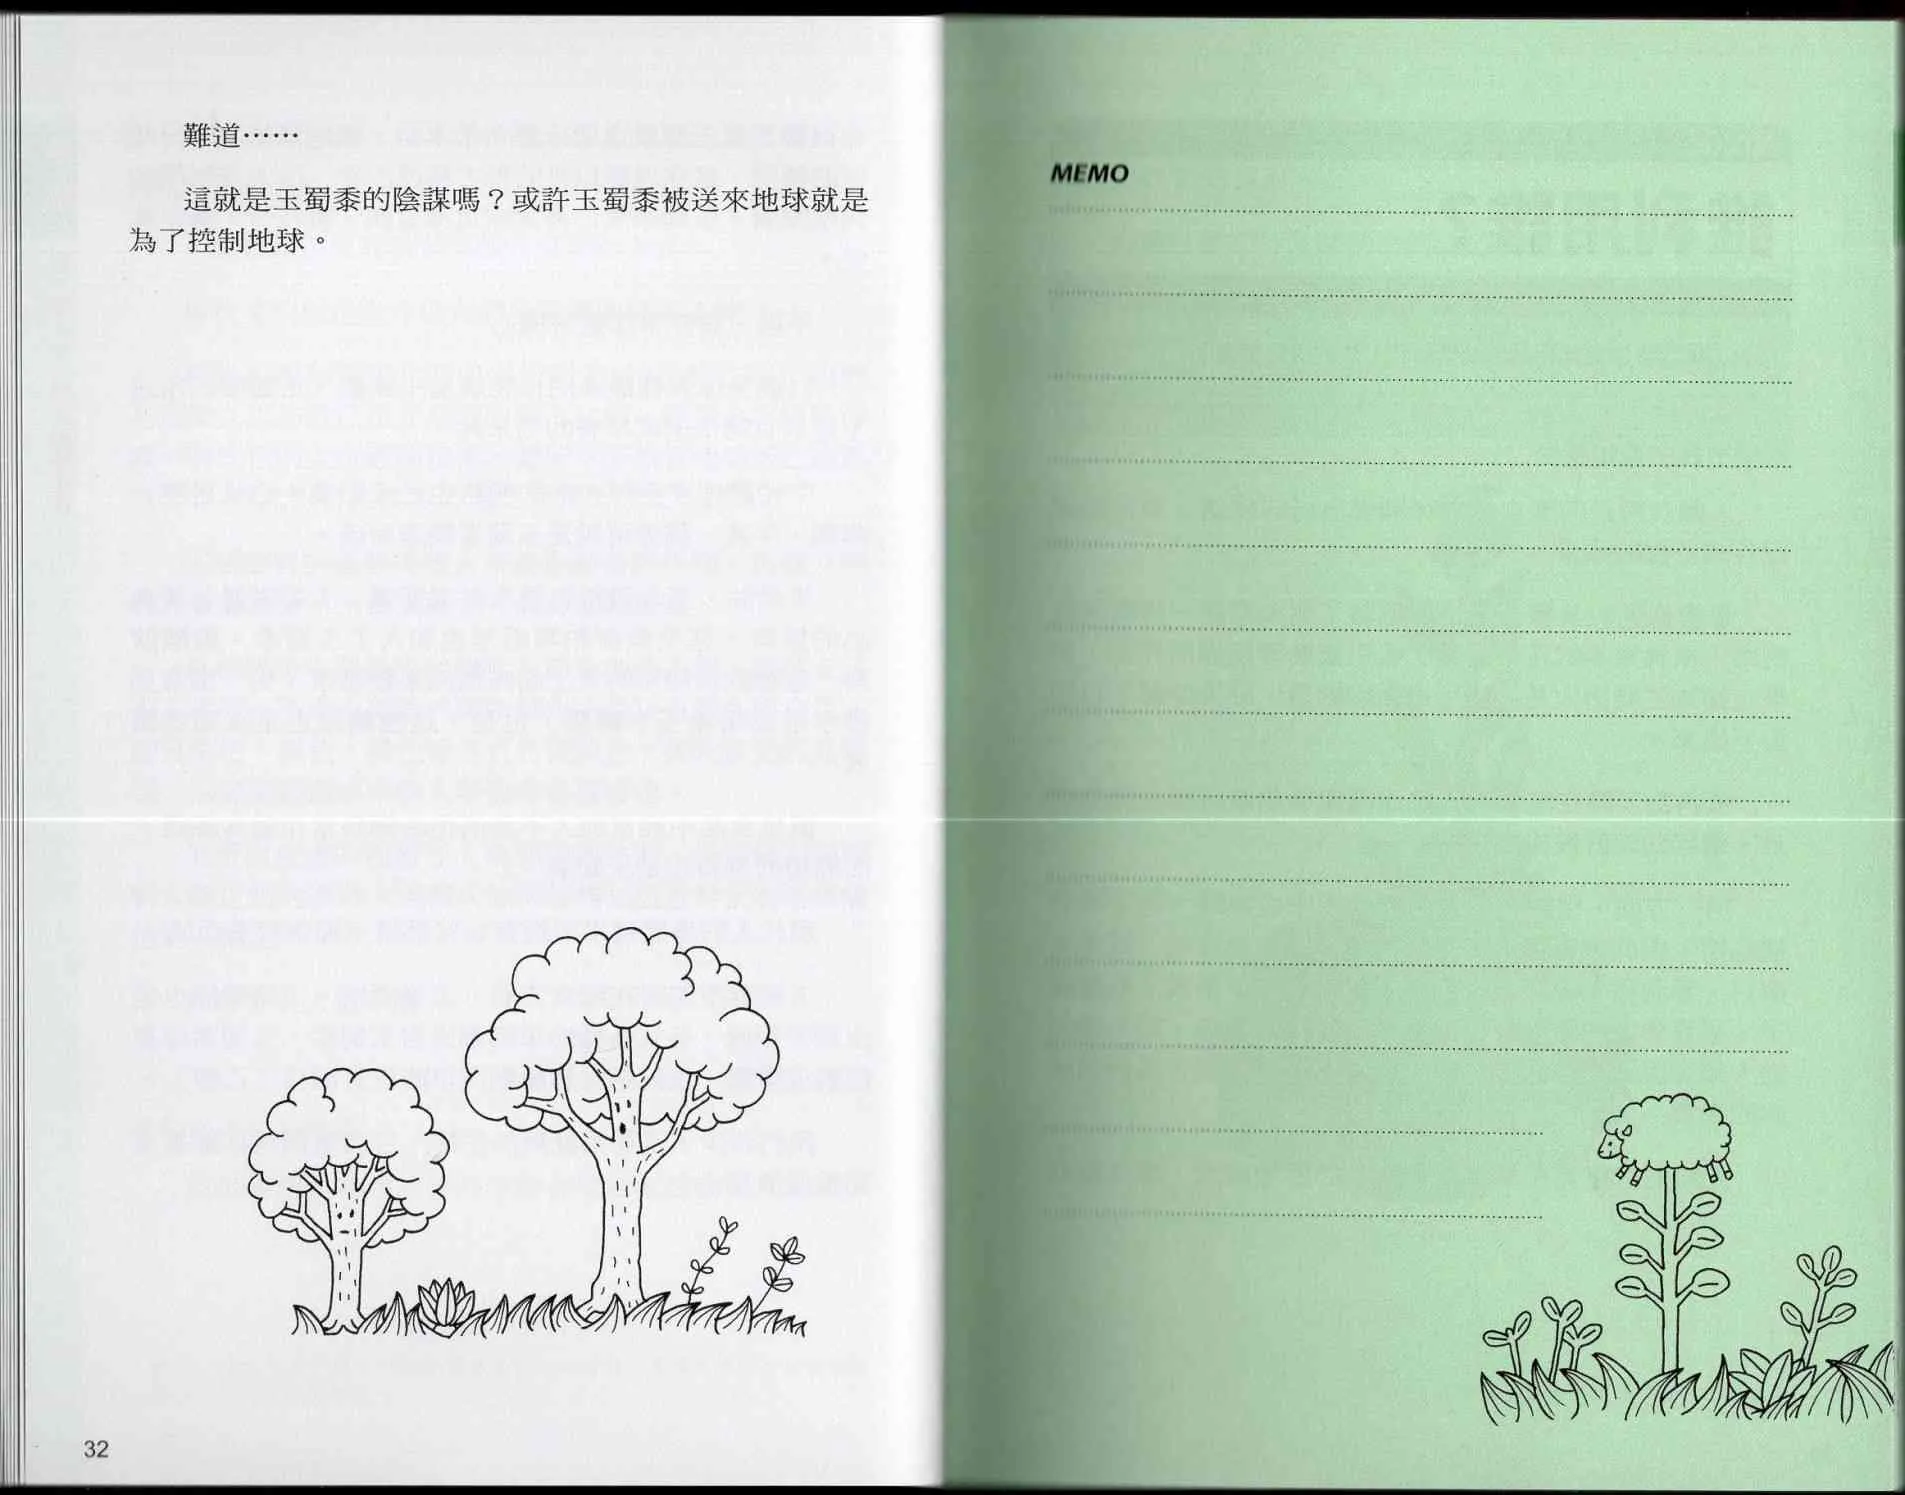 難道……
這就是玉蜀黍的陰謀嗎？或許玉蜀黍被送來地球就是
為了控制地球。
32
MEMO